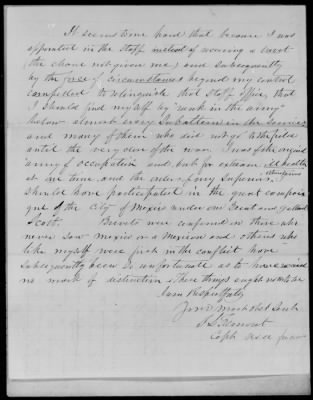 It seems to me hard that because I was
appointed in the Staff instead of receiving a brevet
(the choice not given me) and subsequently
by the force of circumstances beyond my control
compelled to relinquish that Staff office, that
I should find myself by "rank in the army"
below almost every Captain in the service
and many of them who did not go to the field
until the very close of the war. I was of the original
"army of occupation" and but for extreme ill health
at one time and the orders of my Superiors
should have participated in the great campaign
of the City of Mexico under our Great and Gallant
Scott. Brevets were conferred on those who
never saw Mexico or a Mexican and others who
like myself were first in the conflict have
subsequently been so unfortunate as to have received
no mark of distinction; these things ought not to be
I am Respectfully
Your Most Obt Servt
Capt